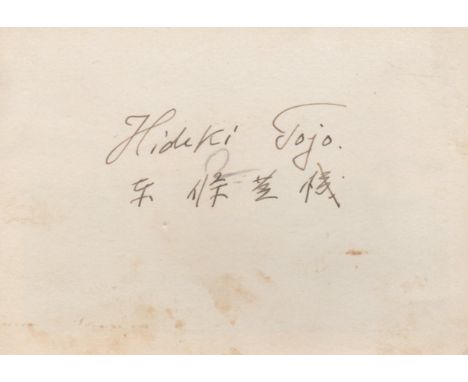 Hideki Tojo.
东條英機